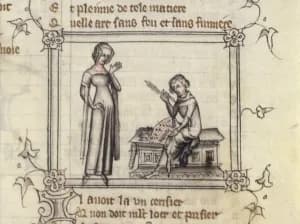 Et plenne de tele matiere
Quelle art sans feu et sans fumiere
noie
Il auoit la un cerisier
Quon doit mlt loer et prisier